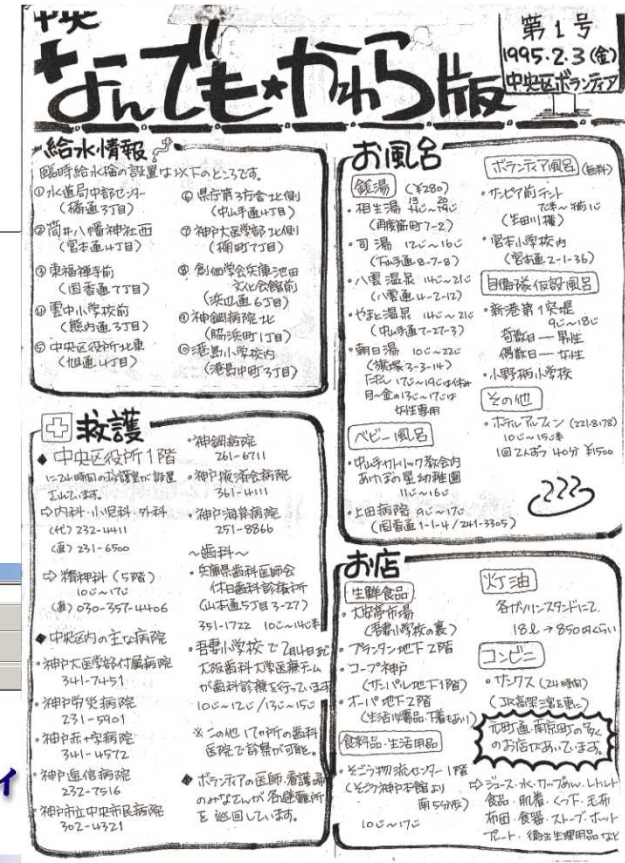 中央
なんでも★かわら版
第1号
1995.2.3(金)
中央区ボランティア
給水情報
臨時給水栓の設置は以下のところです。
①水道局中部センター
(橘通3丁目)
②筒井八幡神社西
(宮本通4丁目)
③東福禅寺前
(国香通7丁目)
④雲中小学校前
(熊内通3丁目)
⑤中央区役所北東
(旭通4丁目)
⑥県庁第3庁舎北側
(中山手通4丁目)
⑦神戸大医学部北側
(楠町7丁目)
⑧創価学会兵庫池田
文化会館前
(浜辺通6丁目)
⑨神鋼病院北
(脇浜町1丁目)
⑩港島小学校内
(港島中町3丁目)
救護
◆中央区役所1階
に24時間の救護室が設置
されています。
⇨内科・小児科・外科
(代)232-4411
(直)231-6500
⇨精神科(5階)
10じ〜17じ
(直)030-357-4406
◆中央区内の主な病院
・神戸大医学部付属病院
341-7451
・神戸労災病院
231-5901
・神戸赤十字病院
341-4572
・神戸逓信病院
232-7516
・神戸市立中央市民病院
302-4321
・神鋼病院
261-6711
・神戸掖済会病院
361-4111
・神戸海員病院
251-8866
〜歯科〜
・兵庫県歯科医師会
休日歯科診療所
(山本通5丁目3-27)
351-1722 10じ〜14じ半
・吾妻小学校で2月4日まで
大阪歯科大学医療チーム
が歯科診療を行っています
10じ〜12じ/13じ〜15じ
※この他17ヶ所の歯科
医院で診察が可能。
◆ボランティアの医師・看護婦
のみなさんが各避難所
を巡回しています。
お風呂
銭湯 (¥280)
・相生湯
(再度筋町7-2)
・司湯 12じ〜16じ
(下山手通8-7-8)
・八雲温泉 14じ〜21じ
(八雲通4-2-12)
・やまと湯泉 14じ〜21じ
(中山手通7-27-3)
・朝日湯 10じ〜22じ
(旗塚3-3-14)
(ただし 17じ〜19じは休み
月〜金の13じ〜17じは
女性専用
ベビー風呂
・中山手カトリック教会内
あけぼの星幼稚園
11じ〜16じ
・上田病院 9じ〜17じ
(国香通1-1-4/241-3305)
ボランティア風呂 (無料)
・サンピア前テント
(生田川横)
・宮本小学校内
(宮本通2-1-36)
自衛隊仮設風呂
・新港第1突堤
9じ〜18じ
奇数日—男性
偶数日—女性
・小野柄小学校
その他
・ホテルアルフィン(221-8178)
10じ〜15じ半
1回2人ずつ 40分 ¥1500
お店
生鮮食品
・大安亭市場
(吾妻小学校の裏)
・プランタン地下2階
・コープ神戸
(サンパル地下1階)
・オーパ地下2階
(生活必需品・下着もあり)
食料品・生活用品
・そごう物流センター1階
(そごう神戸本館より
南5分歩)
10じ〜17じ
灯油
各ガソリンスタンドにて。
18ℓ→850円くらい
コンビニ
・サンクス(24時間)
(JR高架沿を東に)
元町通・南京町の多く
のお店があいています。
⇨ジュース・水・カップめん・レトルト
食品・肌着・くつ下・毛布
布団・食器・ストーブ・ホット
プレート・衛生生理用品など